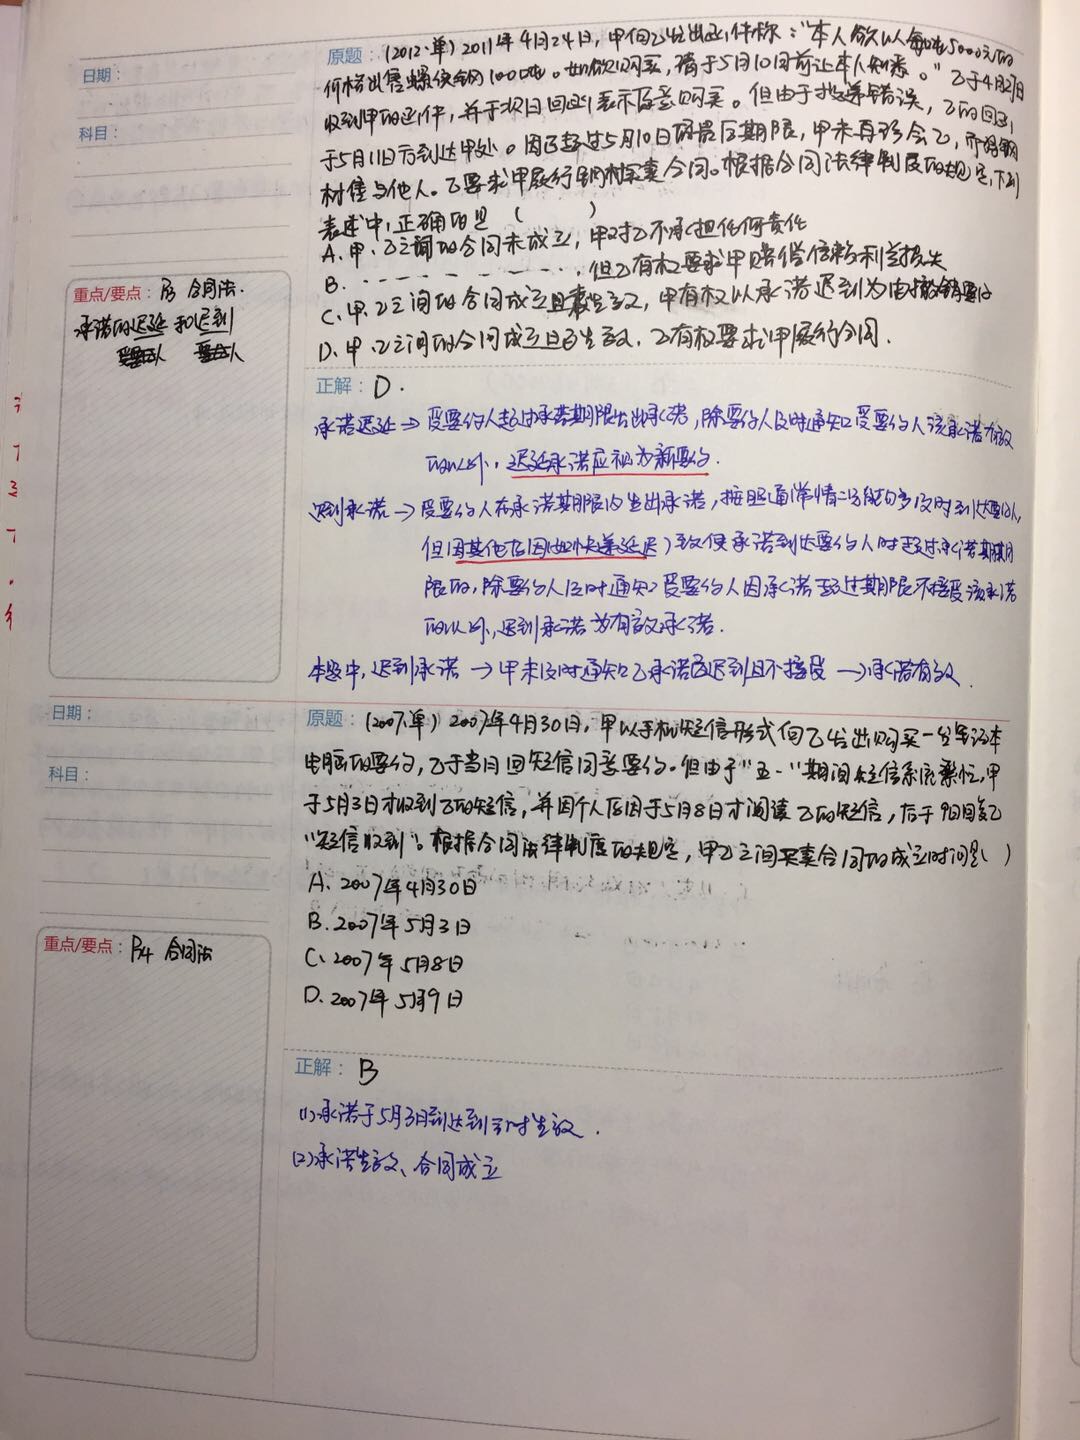 日期：
科目：
重点/要点：P3 合同法.
承诺的迟延和迟到
原题：(2012·单) 2011年4月24日，甲向乙发出函件称："本人欲以每吨5000元的
价格出售螺纹钢100吨。如欲购买，请于5月10日前让本人知悉。"乙于4月27日
收到甲的函件，并于次日回函表示愿意购买。但由于投递错误，乙的回函
于5月11日方到达甲处。因已超过5月10日的最后期限，甲未再理会乙，而将钢
材售与他人。乙要求甲履行钢材买卖合同。根据合同法律制度的规定，下列
表述中，正确的是（ ）
A、甲、乙之间的合同未成立，甲对乙不承担任何责任
B. - - - - - - - - - - ，但乙有权要求甲赔偿信赖利益损失
C、甲、乙之间的合同成立且生效，甲有权以承诺迟到为由撤销要约
D、甲、乙之间的合同成立且已生效，乙有权要求甲履行合同.
正解：D.
承诺迟延→受要约人超过承诺期限发出承诺，除要约人及时通知受要约人该承诺有效
的以外，迟延承诺应视为新要约.
迟到承诺→受要约人在承诺期限内发出承诺，按照通常情况能够及时到达要约人，
但因其他原因(如快递延迟)致使承诺到达要约人时超过承诺期
限的，除要约人及时通知受要约人因承诺超过期限不接受该承诺
的以外，迟到承诺为有效承诺.
本题中，迟到承诺→甲未及时通知乙承诺因迟到且不接受→承诺有效.
日期：
科目：
重点/要点：P34 合同法
原题：(2007·单) 2007年4月30日，甲以手机短信形式向乙发出购买一台笔记本
电脑的要约，乙于当日回短信同意要约。但由于"五一"期间短信系统繁忙，甲
于5月3日才收到乙的短信，并因个人原因于5月8日才阅读乙的短信，后于9日回复乙
"短信收到"。根据合同法律制度的规定，甲乙之间买卖合同的成立时间是( )
A. 2007年4月30日
B. 2007年5月3日
C、2007年5月8日
D、2007年5月9日
正解：B
(1)承诺于5月3日到达到时生效.
(2)承诺生效、合同成立